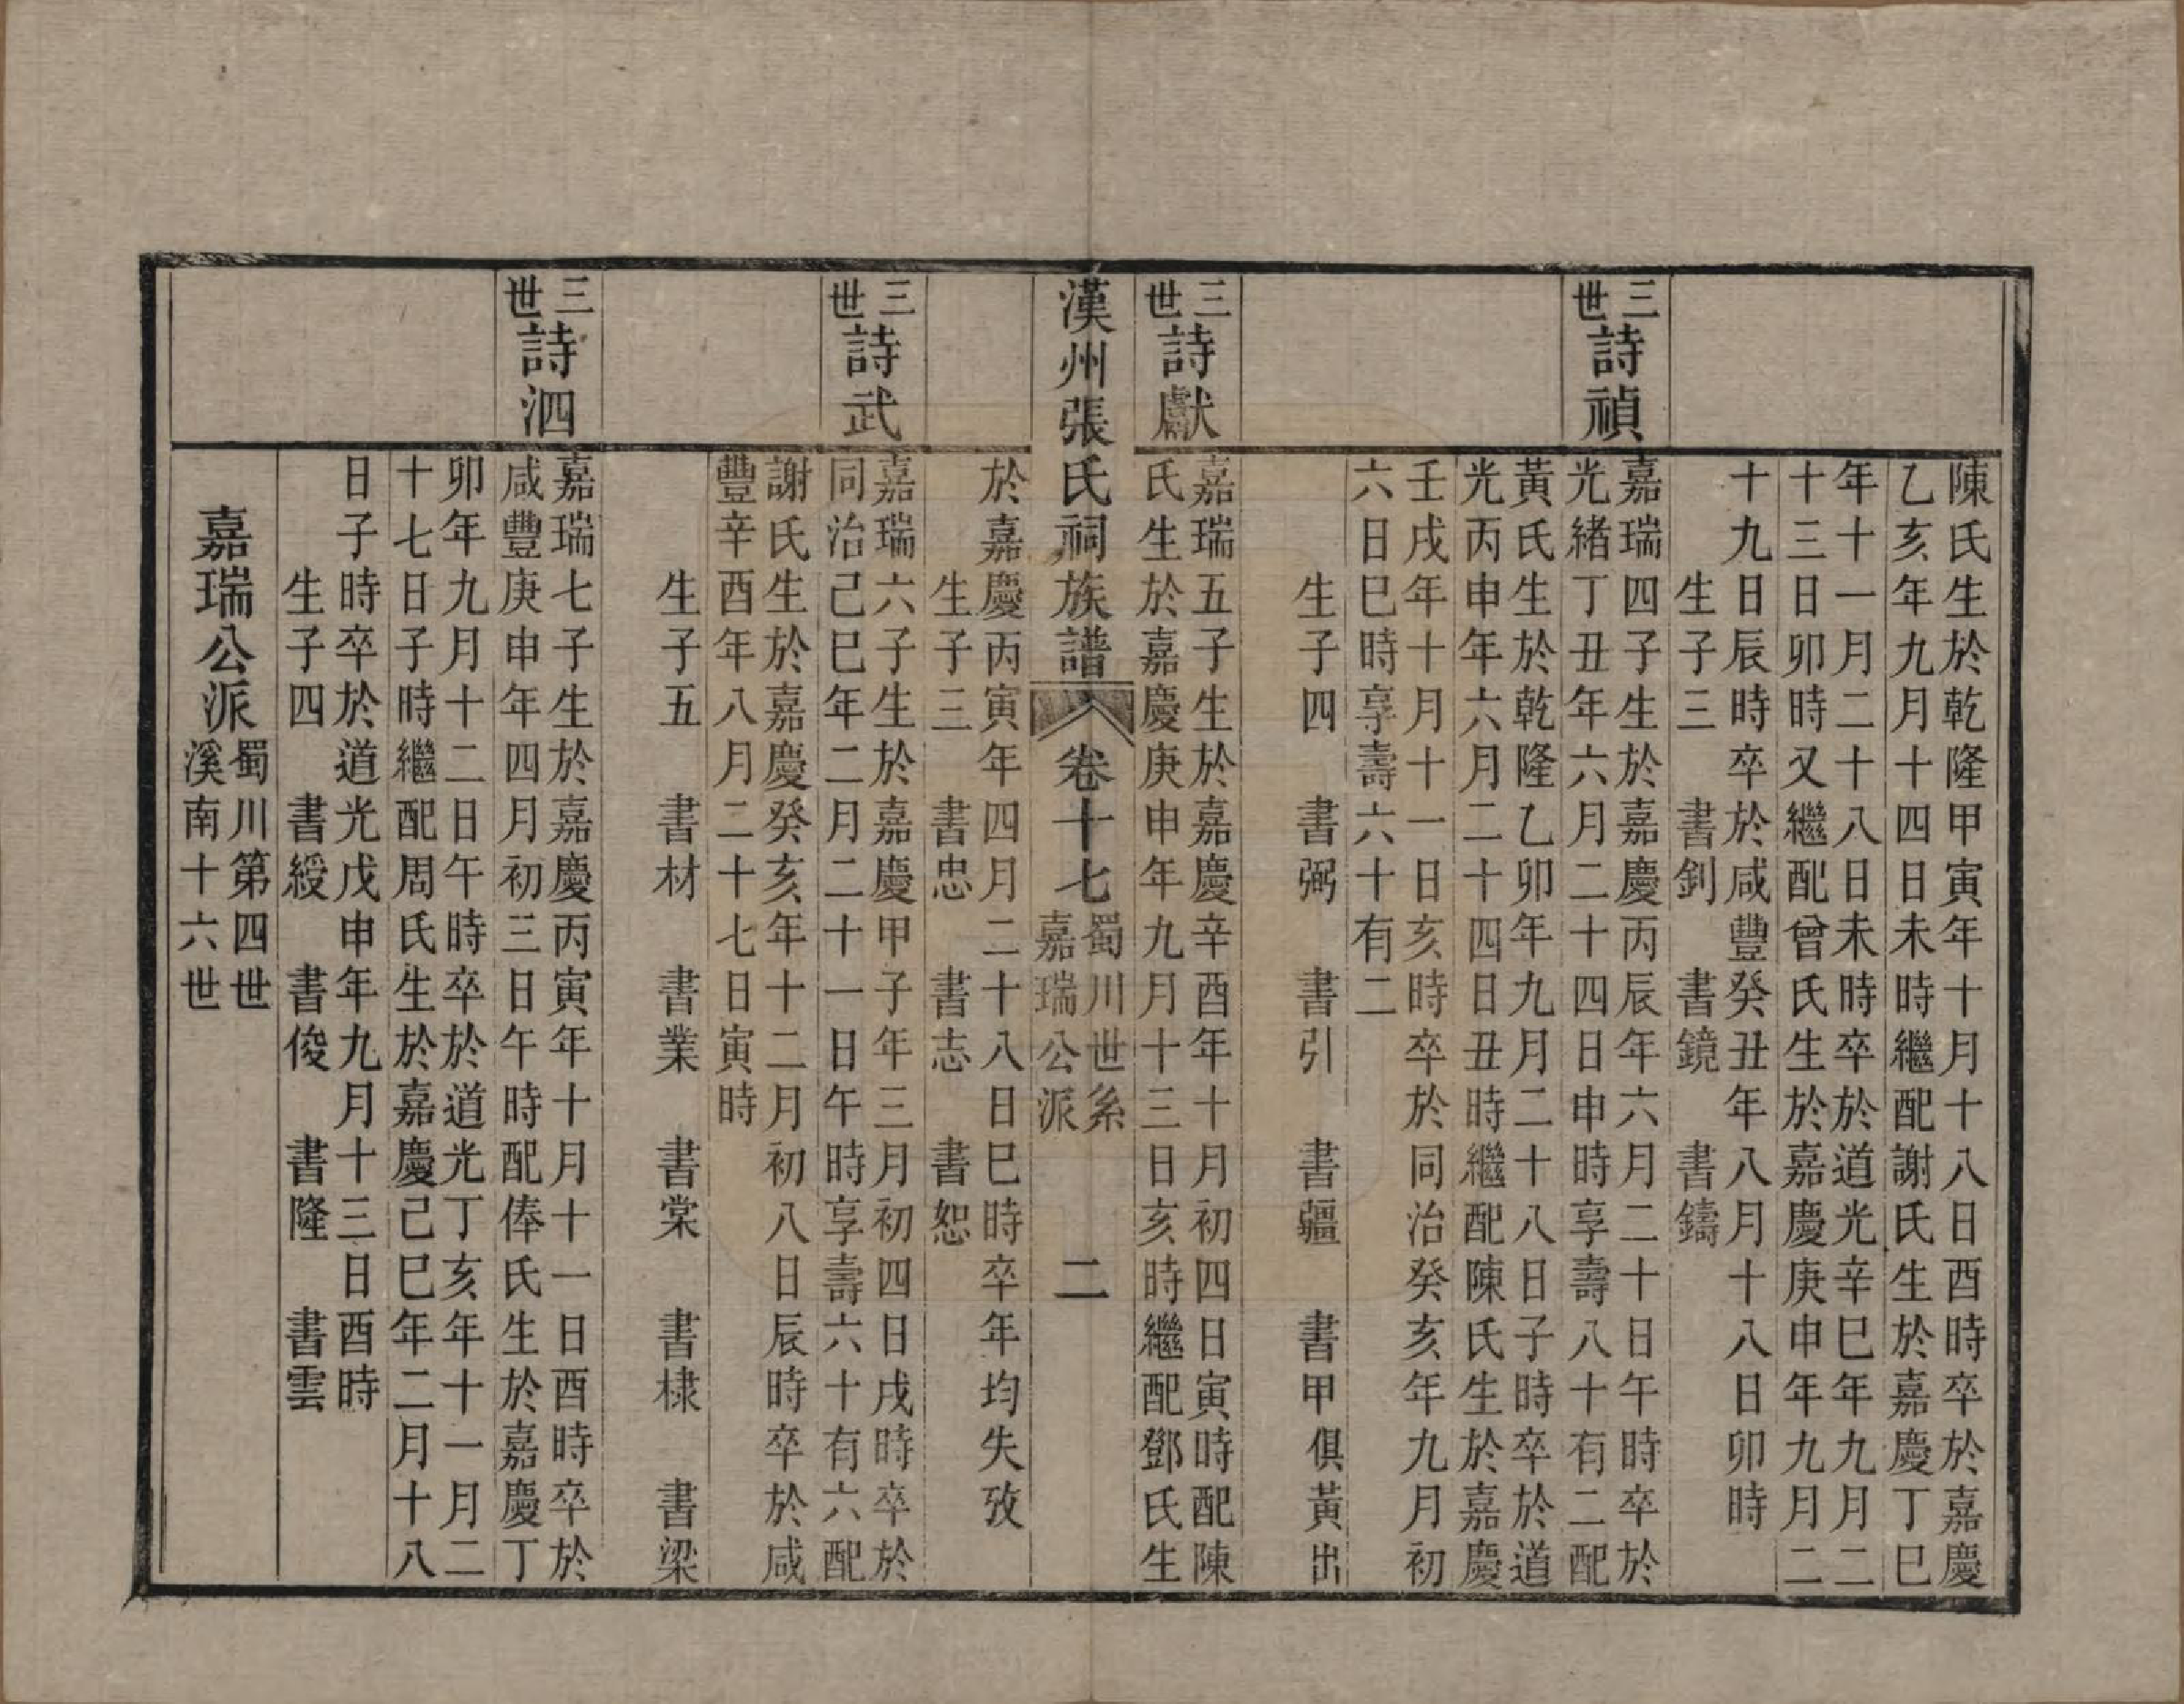 陳氏生於乾隆甲寅年十月十八日酉時卒於嘉慶
乙亥年九月十四日未時繼配謝氏生於嘉慶丁巳
年十一月二十八日未時卒於道光辛巳年九月二
十三日卯時又繼配曾氏生於嘉慶庚申年九月二
十九日辰時卒於咸豐癸丑年八月十八日卯時
生子三 書釗 書鏡 書鑄
三世詩禎
嘉瑞四子生於嘉慶丙辰年六月二十日午時卒於
光緒丁丑年六月二十四日申時享壽八十有二配
黃氏生於乾隆乙卯年九月二十八日子時卒於道
光丙申年六月二十四日丑時繼配陳氏生於嘉慶
壬戌年十月十一日亥時卒於同治癸亥年九月初
六日巳時享壽六十有二
生子四 書弼 書引 書疆 書甲俱黃出
三世詩獻
嘉瑞五子生於嘉慶辛酉年十月初四日寅時配陳
氏生於嘉慶庚申年九月十三日亥時繼配鄧氏生
漢州張氏祠族譜 卷十七 蜀川世系 嘉瑞公派 二
於嘉慶丙寅年四月二十八日巳時卒年均失攷
生子三 書忠 書志 書恕
三世詩武
嘉瑞六子生於嘉慶甲子年三月初四日戌時卒於
同治己巳年二月二十一日午時享壽六十有六配
謝氏生於嘉慶癸亥年十二月初八日辰時卒於咸
豐辛酉年八月二十七日寅時
生子五 書材 書業 書棠 書棣 書梁
三世詩泗
嘉瑞七子生於嘉慶丙寅年十月十一日酉時卒於
咸豐庚申年四月初三日午時配俸氏生於嘉慶丁
卯年九月十二日午時卒於道光丁亥年十一月二
十七日子時繼配周氏生於嘉慶己巳年二月十八
日子時卒於道光戊申年九月十三日酉時
生子四 書綬 書俊 書隆 書雲
嘉瑞公派 蜀川第四世 溪南十六世